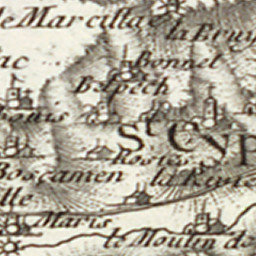 de Marcillac
la Bruy
Bonnel
ac
Belpech
bonis
St. Cyp
Rosies
Boscamen
la Rivie
lle
Maris
le Moulin de